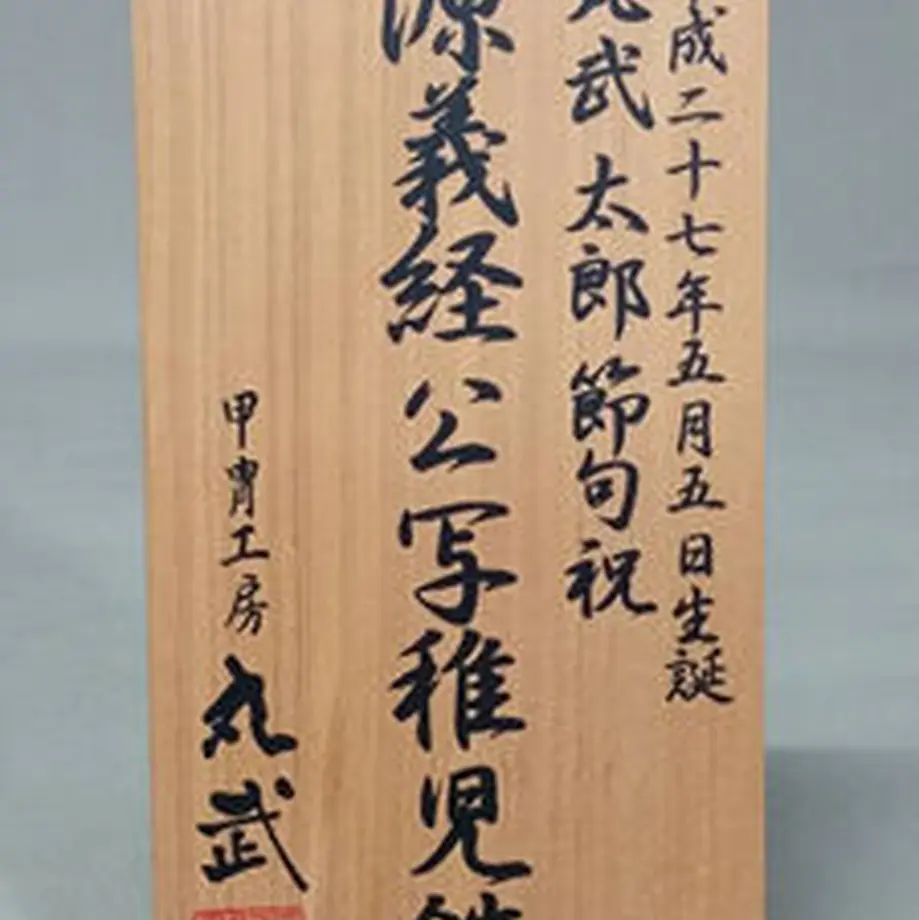 成二十七年五月五日生誕
武太郎節句祝
源義経公写稚児
甲冑工房
丸武